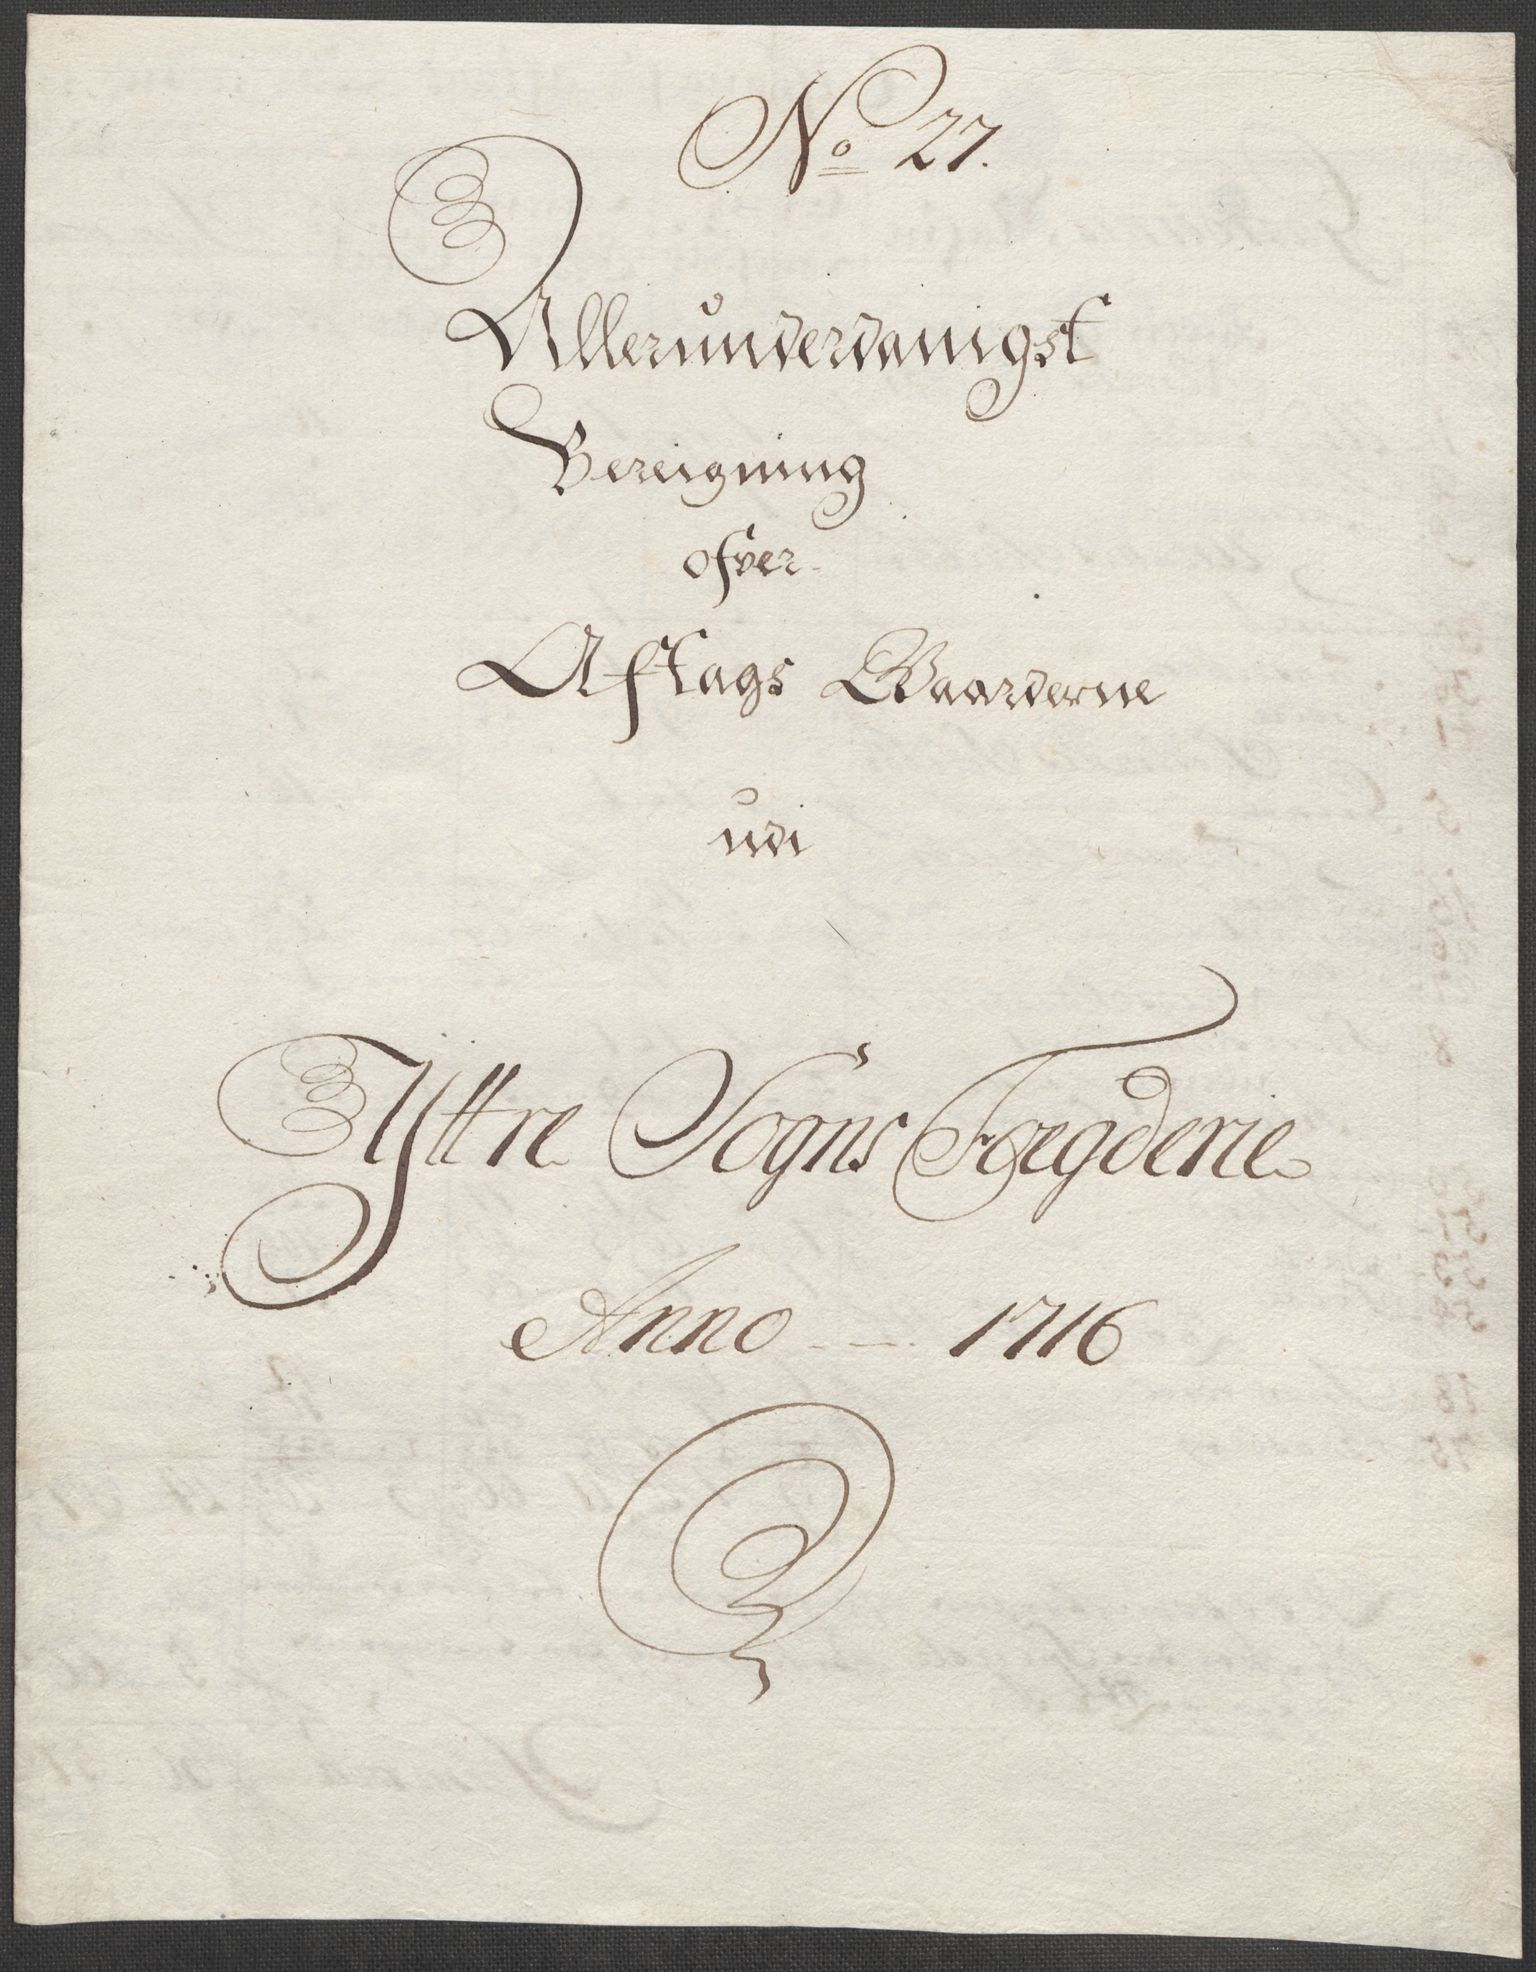 No 27.
Allerunderdanigst
Bereigning
ofver
Aftags Waarderne
udi
Yttre Sogns Fægderie
Anno - - 1716